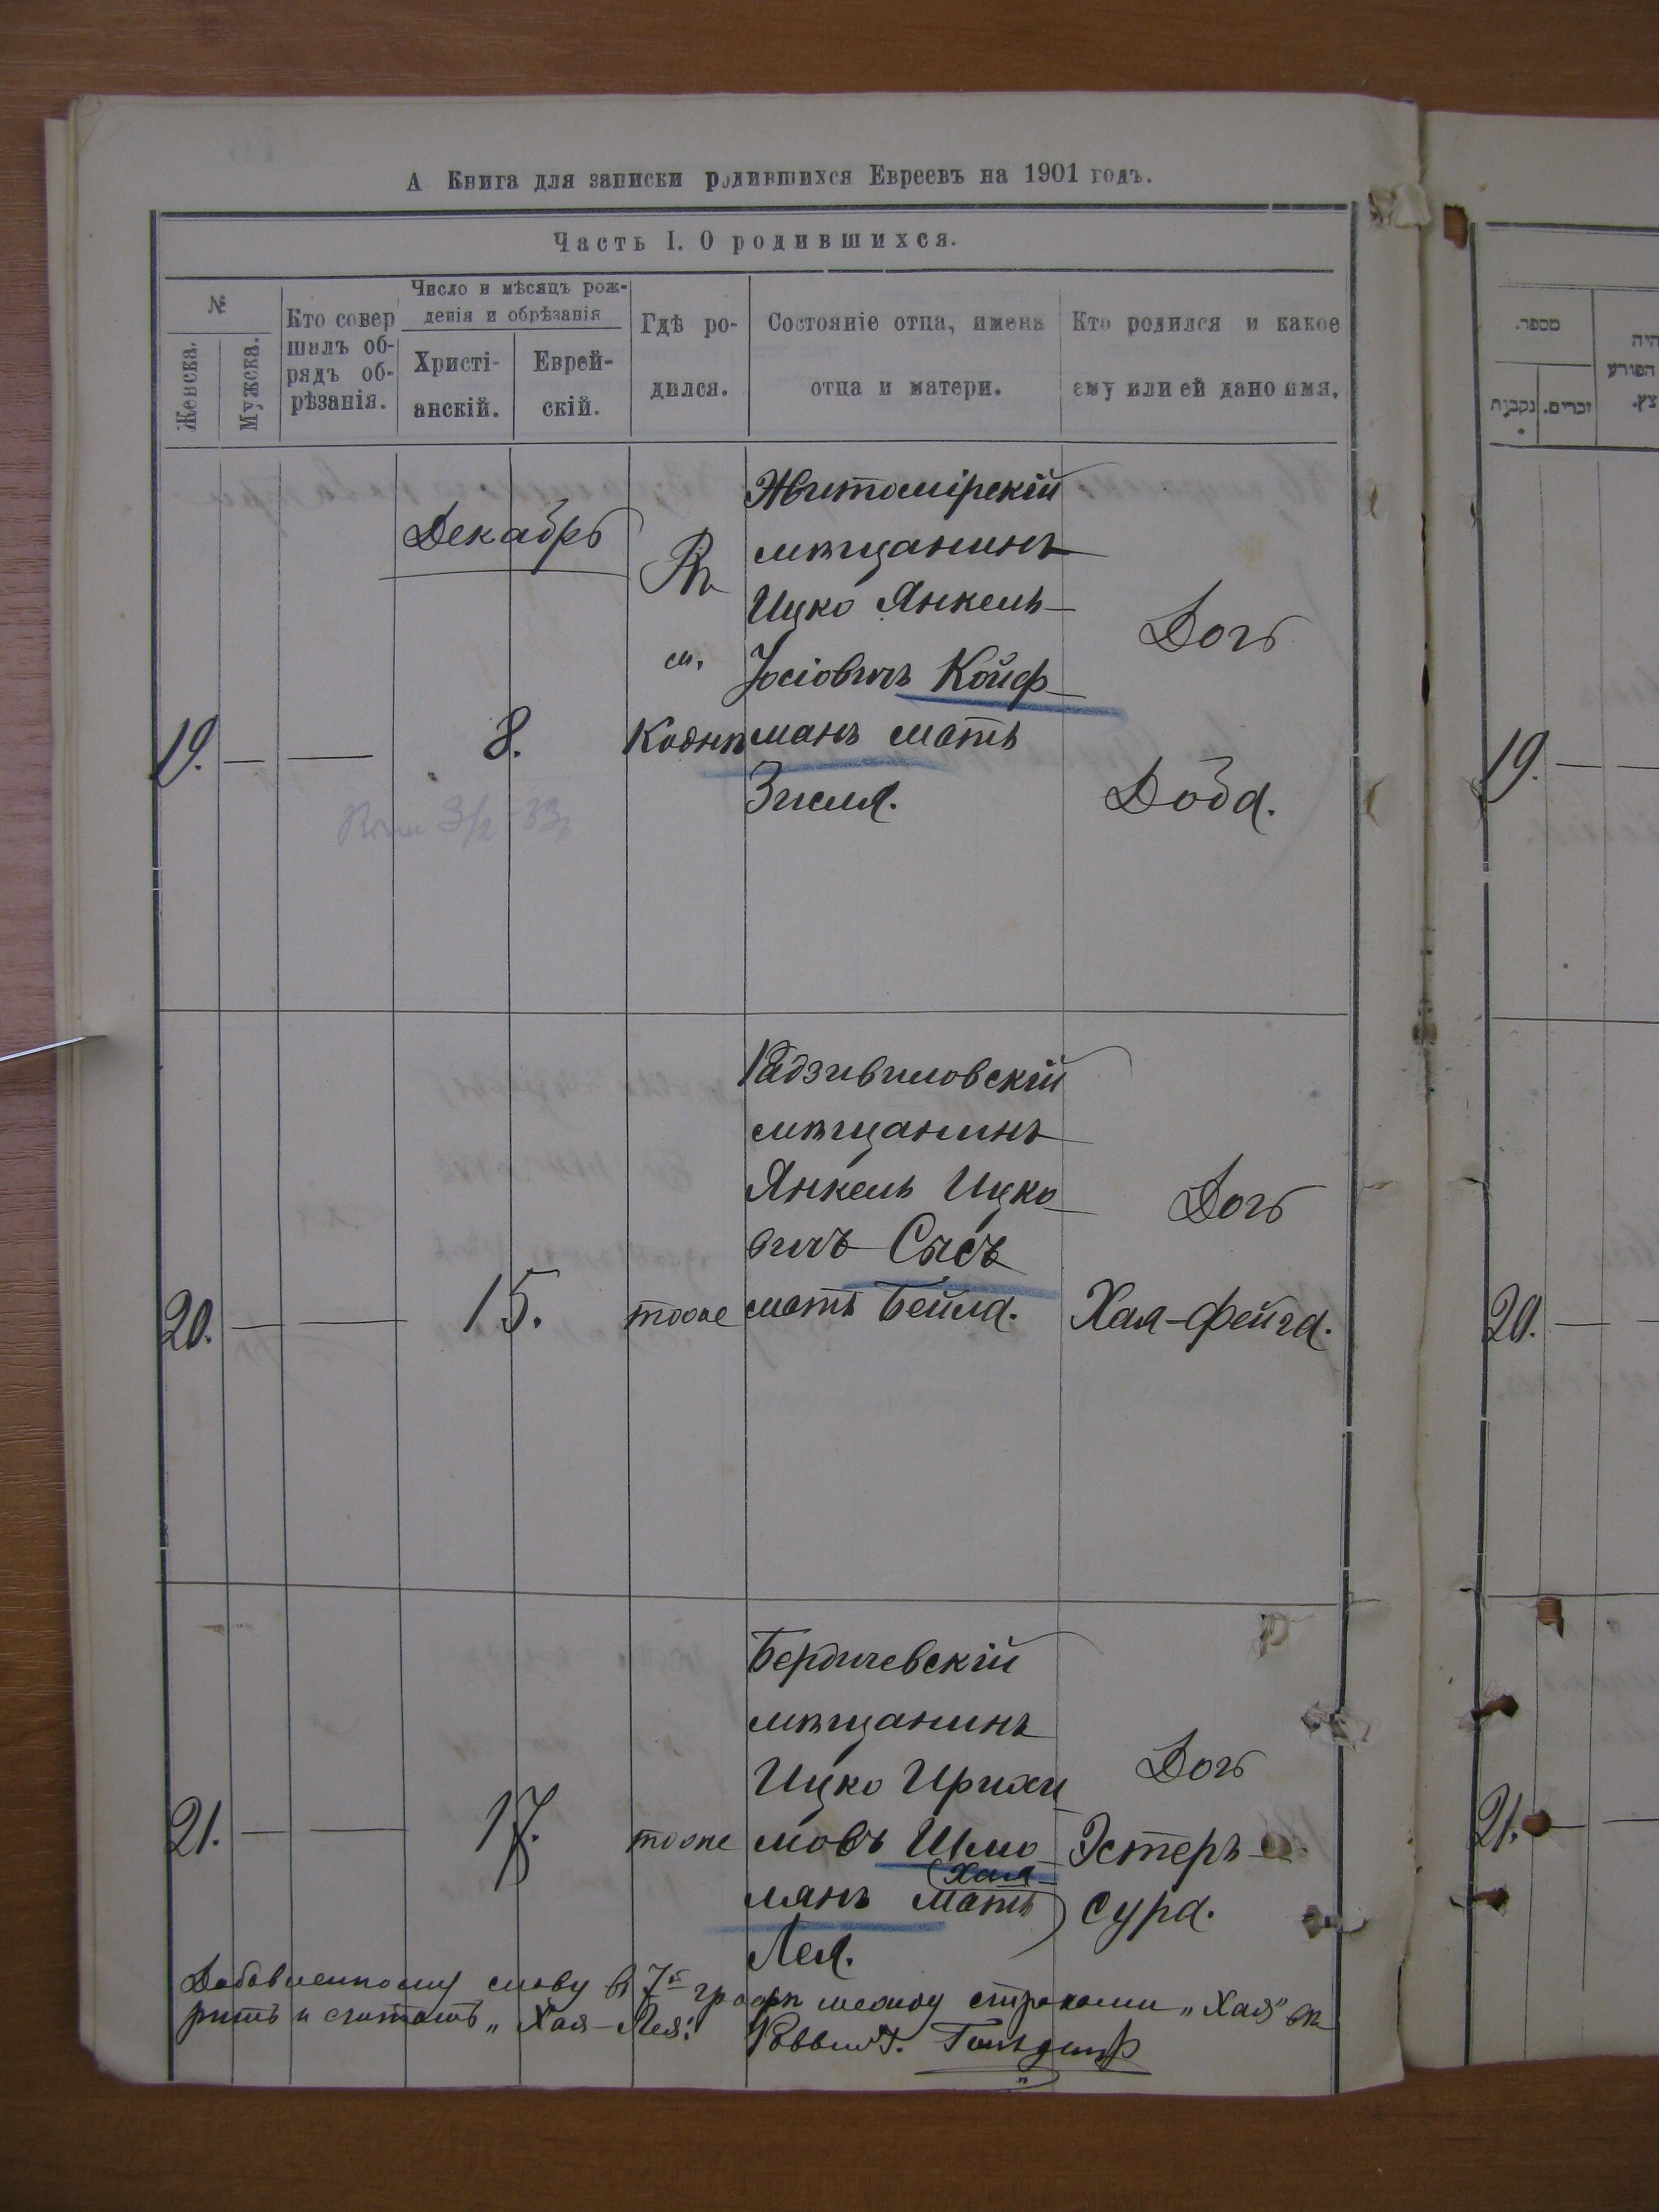 А Книга для записки родившихся Евреевъ на 1901 годъ.
Часть I. О родившихся.
№
Женска.
Мужска.
Кто совер
шалъ об-
рядъ об-
рѣзанія.
Число и мѣсяцъ рож-
денія и обрѣзанія
Христі-
анскій.
Еврей-
скій.
Гдѣ ро-
дился.
Состояніе отца, имена
отца и матери.
Кто родился и какое
ему или ей дано имя.
19.
Декабрь
8.
Въ
м.
Коднѣ
Житомірскій
мѣщанинъ
Ицко Янкель-
Іосіовичъ Койф-
манъ мать
Зисля.
Дочь
Доба.
20.
15.
тоже
Радзивиловскій
мѣщанинъ
Янкель Ицко-
вичъ Сысъ
мать Бейла.
Дочь
Хая-Фейга.
21.
17.
тоже
Бердичевскій
мѣщанинъ
Ицко
мовъ Шмо-
Хая-
лянъ мать
Лея.
Дочь
Эстеръ-
Сура.
Добавленному слову въ 7й графѣ между строками „Хая" вѣ-
рить и считать „Хая-Лея".
Раввинъ.
מספר.
נקבות
זכרים.
היה
הפורע
19.
20.
21.